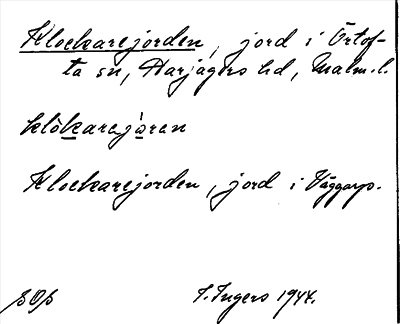 Klockarejorden, jord i Örtof-
ta sn, Harjagers hd, Malm. l.
klåkarejåren
Klockarejorden, jord i Väggarp.
I. Ingers 1944.